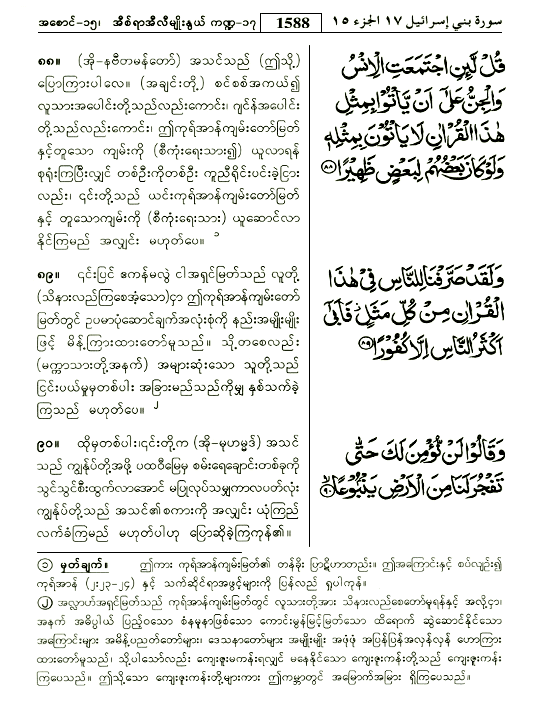 အစောင်-၁၅၊ အီစ်ရာအီလီမျိုးနွယ် ကဏ္ဍ-၁၇ 1588 سورة بني إسرائيل ١٧ الجزء ١٥
၈၈။ (အို-နဗီတမန်တော်) အသင်သည် (ဤသို့)
ပြောကြားပါလေ။ (အချင်းတို့) စင်စစ်အကယ်၍
လူသားအပေါင်းတို့သည်လည်းကောင်း၊ ဂျင်န်အပေါင်း
တို့သည်လည်းကောင်း၊ ဤကုရ်အာန်ကျမ်းတော်မြတ်
နှင့်တူသော ကျမ်းကို (စီကုံးရေးသား၍) ယူလာရန်
စုရုံးကြပြီးလျှင် တစ်ဦးကိုတစ်ဦး ကူညီရိုင်းပင်းခဲ့ငြား
လည်း၊ ၎င်းတို့သည် ယင်းကုရ်အာန်ကျမ်းတော်မြတ်
နှင့် တူသောကျမ်းကို (စီကုံးရေးသား) ယူဆောင်လာ
နိုင်ကြမည် အလျှင်း မဟုတ်ပေ။ ၁
قُل لَّئِنِ اجْتَمَعَتِ الْاِنْسُ
وَالْجِنُّ عَلٰٓى اَنْ يَّاْتُوْا بِمِثْلِ
هٰذَا الْقُرْاٰنِ لَا يَاْتُوْنَ بِمِثْلِهٖ
وَلَوْ كَانَ بَعْضُهُمْ لِبَعْضٍ ظَهِيْرًا ٨٨
၈၉။ ၎င်းပြင် ဧကန်မလွဲ ငါအရှင်မြတ်သည် လူတို့
(သိနားလည်ကြစေအံ့သော)ငှာ ဤကုရ်အာန်ကျမ်းတော်
မြတ်တွင် ဥပမာပုံဆောင်ချက်အလုံးစုံကို နည်းအမျိုးမျိုး
ဖြင့် မိန့်ကြားထားတော်မူသည်။ သို့တစေလည်း
(မက္ကာသားတို့အနက်) အများဆုံးသော သူတို့သည်
ငြင်းပယ်မှုမှတစ်ပါး အခြားမည်သည်ကိုမျှ နှစ်သက်ခဲ့
ကြသည် မဟုတ်ပေ။ ၂
وَلَقَدْ صَرَّفْنَا لِلنَّاسِ فِيْ هٰذَا
الْقُرْاٰنِ مِنْ كُلِّ مَثَلٍ فَاَبٰٓى
اَكْثَرُ النَّاسِ اِلَّا كُفُوْرًا ٨٩
၉၀။ ထိုမှတစ်ပါး၊၎င်းတို့က (အို-မုဟမ္မဒ်) အသင်
သည် ကျွန်ုပ်တို့အဖို့ ပထဝီမြေမှ စမ်းရေချောင်းတစ်ခုကို
သွင်သွင်စီးထွက်လာအောင် မပြုလုပ်သမျှကာလပတ်လုံး
ကျွန်ုပ်တို့သည် အသင်၏စကားကို အလျှင်း ယုံကြည်
လက်ခံကြမည် မဟုတ်ပါဟု ပြောဆိုခဲ့ကြကုန်၏။
وَقَالُوْا لَنْ نُّؤْمِنَ لَكَ حَتّٰى
تَفْجُرَ لَنَا مِنَ الْاَرْضِ يَنْۢبُوْعًا ٩٠
၁ မှတ်ချက်။ ဤကား ကုရ်အာန်ကျမ်းမြတ်၏ တန်ခိုး ပြာဋိဟာတည်း။ ဤအကြောင်းနှင့် စပ်လျဉ်း၍
ကုရ်အာန် (၂း၂၃-၂၄) နှင့် သက်ဆိုင်ရာအဖွင့်များကို ပြန်လည် ရှုပါကုန်။
၂ အလ္လာဟ်အရှင်မြတ်သည် ကုရ်အာန်ကျမ်းမြတ်တွင် လူသားတို့အား သိနားလည်စေတော်မူရန်နှင့် အလို့ငှာ၊
အနက် အဓိပ္ပါယ် ပြည့်ဝသော စံနမူနာဖြစ်သော ကောင်းမွန်မြင့်မြတ်သော ထိရောက် ဆွဲဆောင်နိုင်သော
အကြောင်းများ အမိန့်ပညတ်တော်များ၊ ဒေသနာတော်များ အမျိုးမျိုး အဖုံဖုံ အပြန်ပြန်အလှန်လှန် ဟောကြား
ထားတော်မူသည်၊ သို့ပါသော်လည်း ကျေးဇူးမကန်းရလျှင် မနေနိုင်သော ကျေးဇူးကန်းတို့သည် ကျေးဇူးကန်း
ကြပေသည်။ ဤသို့သော ကျေးဇူးကန်းတို့များကား ဤကမ္ဘာတွင် အမြောက်အမြား ရှိကြပေသည်။